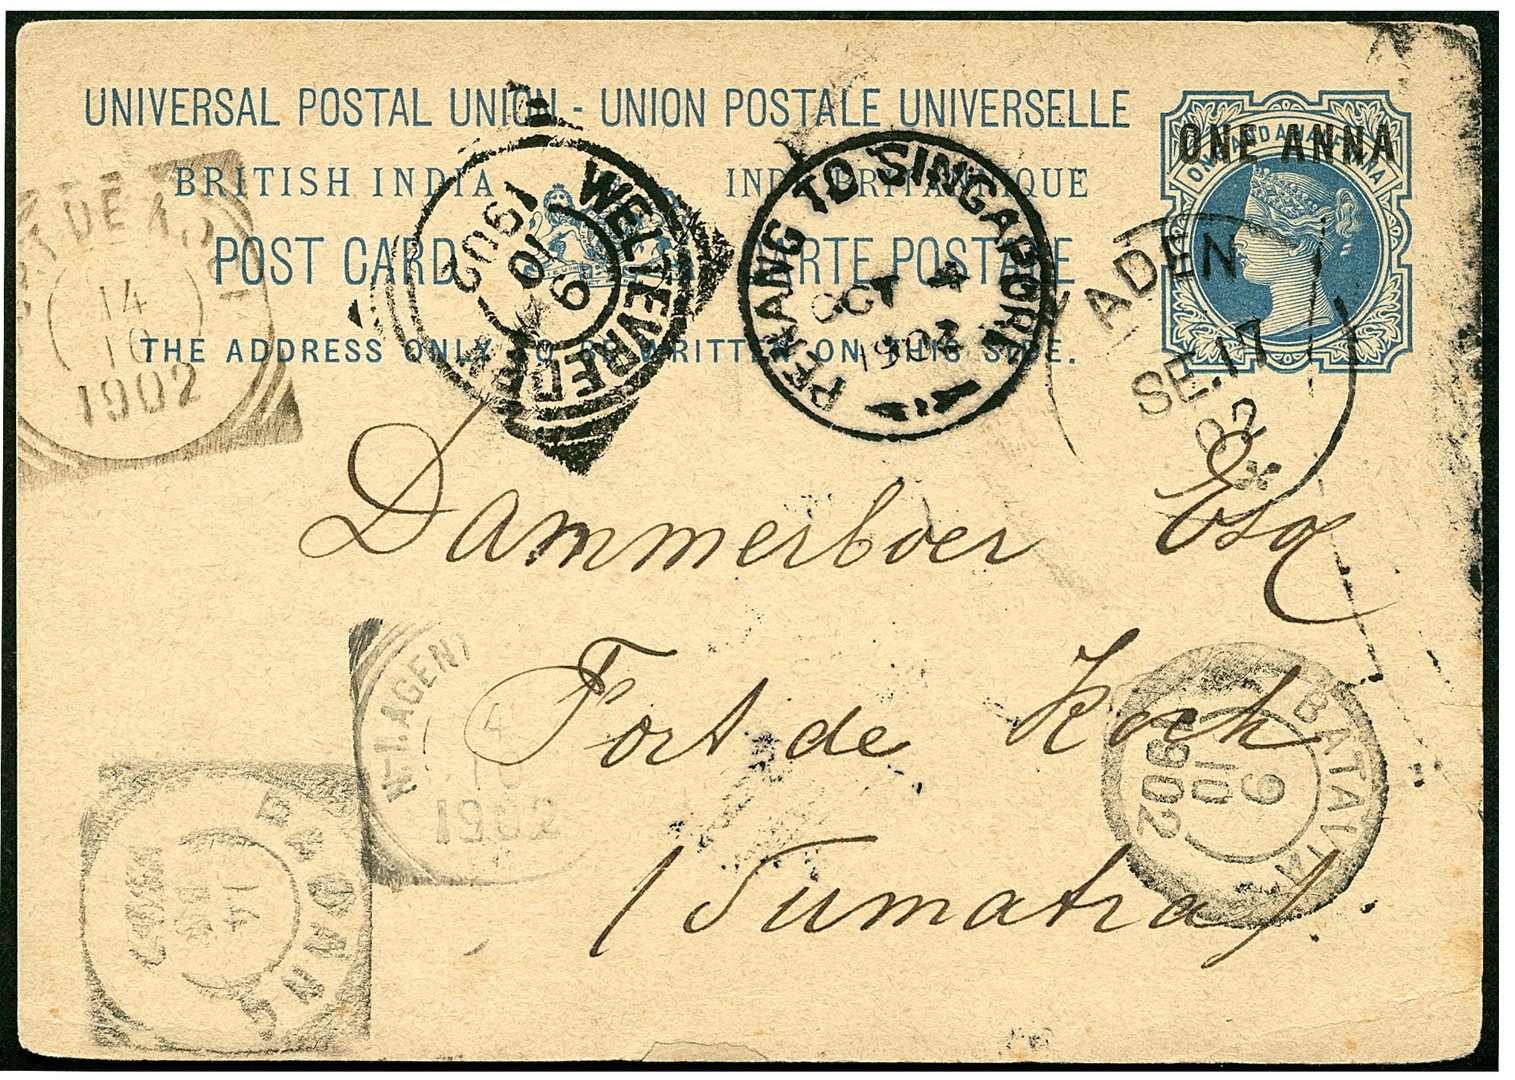 UNIVERSAL POSTAL UNION - UNION POSTALE UNIVERSELLE
BRITISH INDIA
POST CARD CARTE POSTALE
THE ADDRESS ONLY TO BE WRITTEN ON THIS SIDE.
ONE ANNA
ADEN
SE.17
02
PENANG TO SINGAPORE
OCT 4
1902
WELTEVREDEN
9
10
1902
FORT DE KOCK
14
10
1902
Dammerboer Esq
Fort de Kock
(Sumatra).
N-I.AGENT
1902
BATAVIA
9
10
1902
PADANG
14